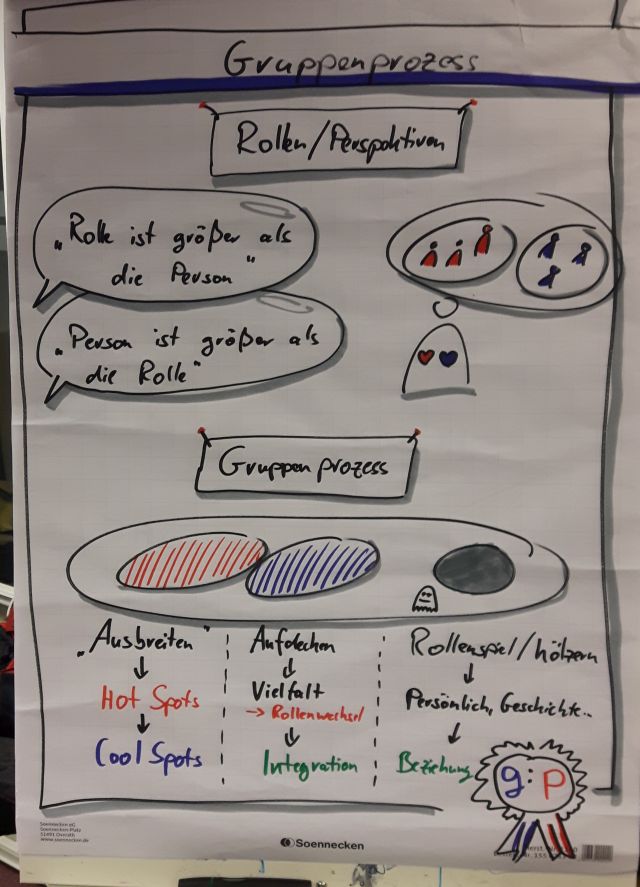 Gruppenprozess
Rollen/Perspektiven
„Rolle ist größer als
die Person"
„Person ist größer als
die Rolle"
Gruppenprozess
„Ausbreiten"
Hot Spots
Cool Spots
Aufdecken
Vielfalt
→ Rollenwechsel
Integration
Rollenspiel/hölzern
Persönlich, Geschichte..
Beziehung
g:p
Soennecken eG
Soennecken-Platz
51491 Overath
www.soennecken.de
Soennecken